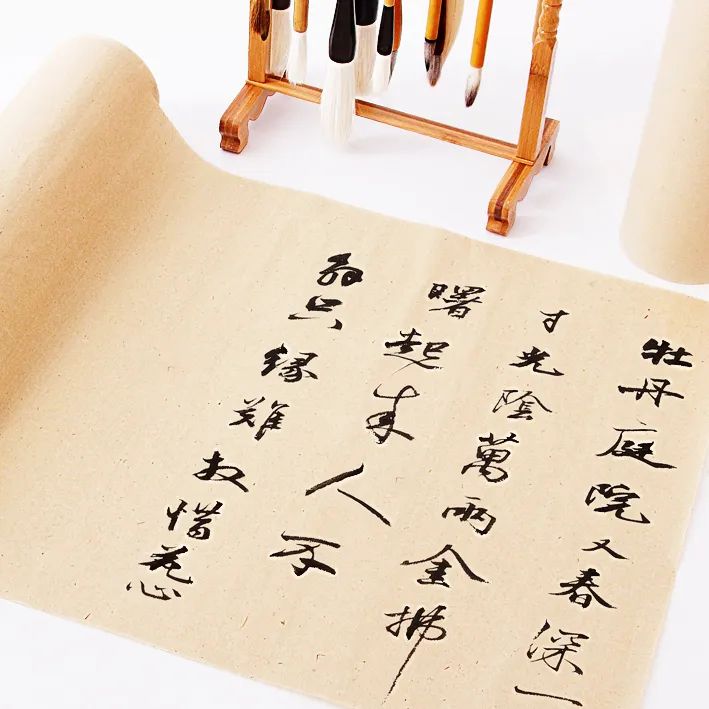 牡丹庭院又春深一
寸光陰萬兩金拂
曙起來人不
解只緣難放惜花心